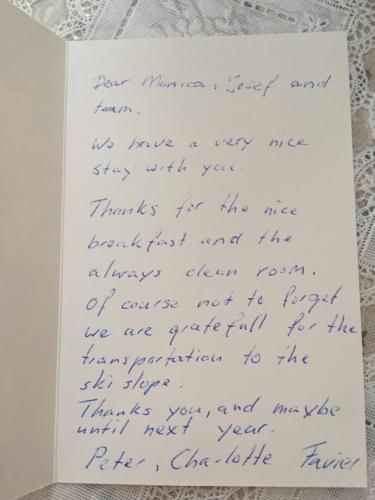 Dear Monica, Josef and
team.
We have a very nice
stay with you.
Thanks for the nice
breakfast and the
always clean room.
Of course not to forget
we are gratefull for the
transportation to the
ski slope.
Thanks you, and maybe
until next year.
Peter, Charlotte Favier